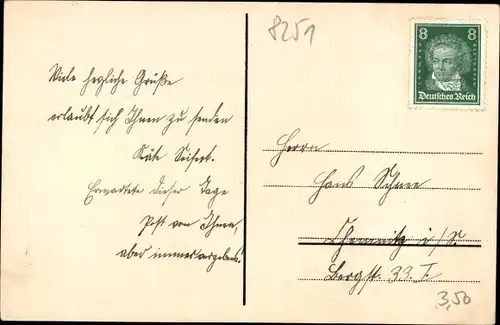 8251
Viele herzliche Grüße
erlaubt sich Ihnen zu senden
Käte Seifert.
Erwartete dieser Tage
Post von Ihnen,
aber immer vergebens!
8 8
Deutsches Reich
Herrn
Hans Schnee
Chemnitz i/S.
Bergst. 33. I.
3,50